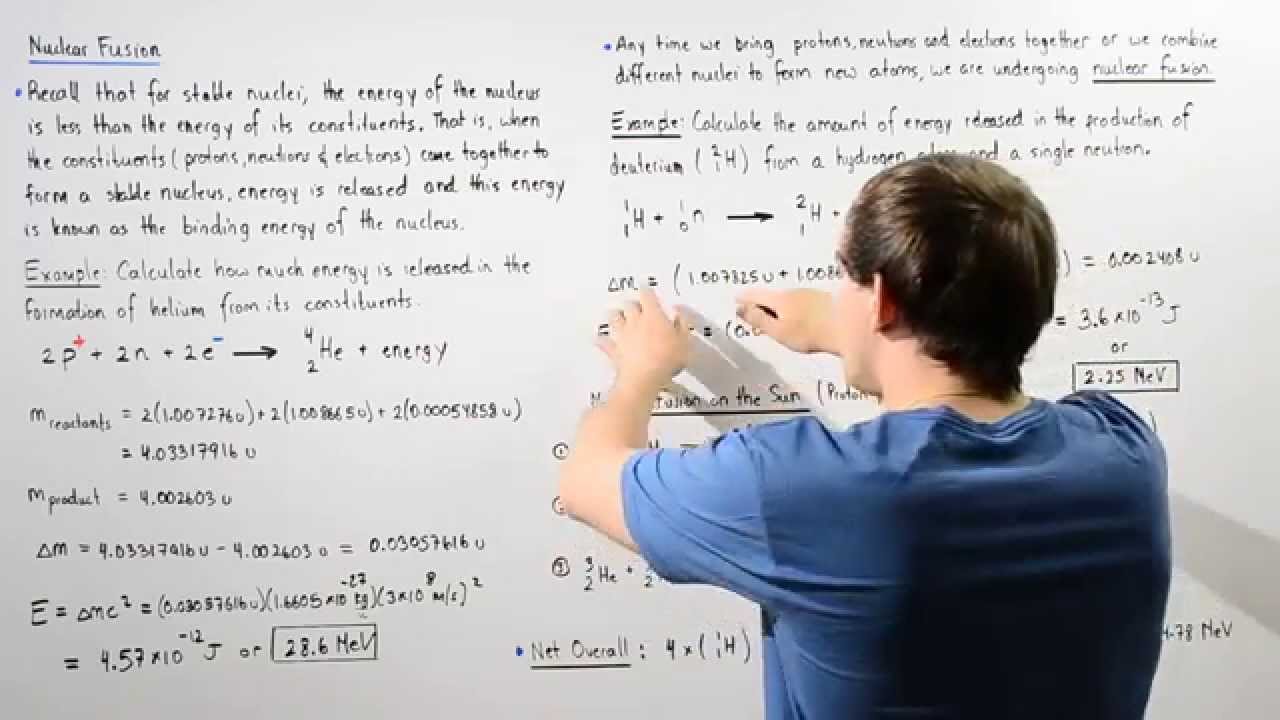 Nuclear Fusion
• Recall that for stable nuclei, the energy of the nucleus
is less than the energy of its constituents. That is, when
the constituents (protons, neutrons & electrons) come together to
form a stable nucleus, energy is released and this energy
is known as the binding energy of the nucleus.
Example: Calculate how much energy is released in the
formation of helium from its constituents.
2p⁺ + 2n + 2e⁻ → ⁴₂He + energy
m reactants = 2(1.007276u)+2(1.008665u)+2(0.00054858u)
= 4.03317916u
m product = 4.002603u
Δm = 4.03317916u - 4.002603u = 0.03057616u
E = Δmc² = (0.03057616u)(1.6605×10⁻²⁷ kg/u)(3×10⁸ m/s)²
= 4.57×10⁻¹² J or 28.6 MeV
• Any time we bring protons, neutrons and electrons together or we combine
different nuclei to form new atoms, we are undergoing nuclear fusion.
Example: Calculate the amount of energy released in the production of
deuterium (²₁H) from a hydrogen and a single neutron.
¹₁H + ¹₀n → ²₁H +
Δm = (1.007825u + 1.008 ) = 0.002408u
= (0.0 = 3.6×10⁻¹³ J
or
2.25 MeV
Fusion on the Sun (Proton
①
③ ³₂He +
4.78 MeV
• Net Overall : 4×(¹₁H)